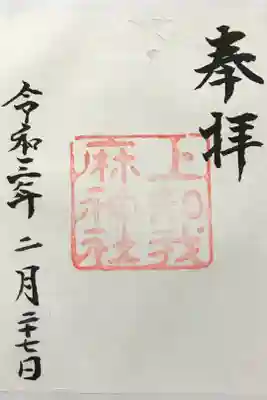 奉拝
上知我
麻神社
令和三年 二月二十七日